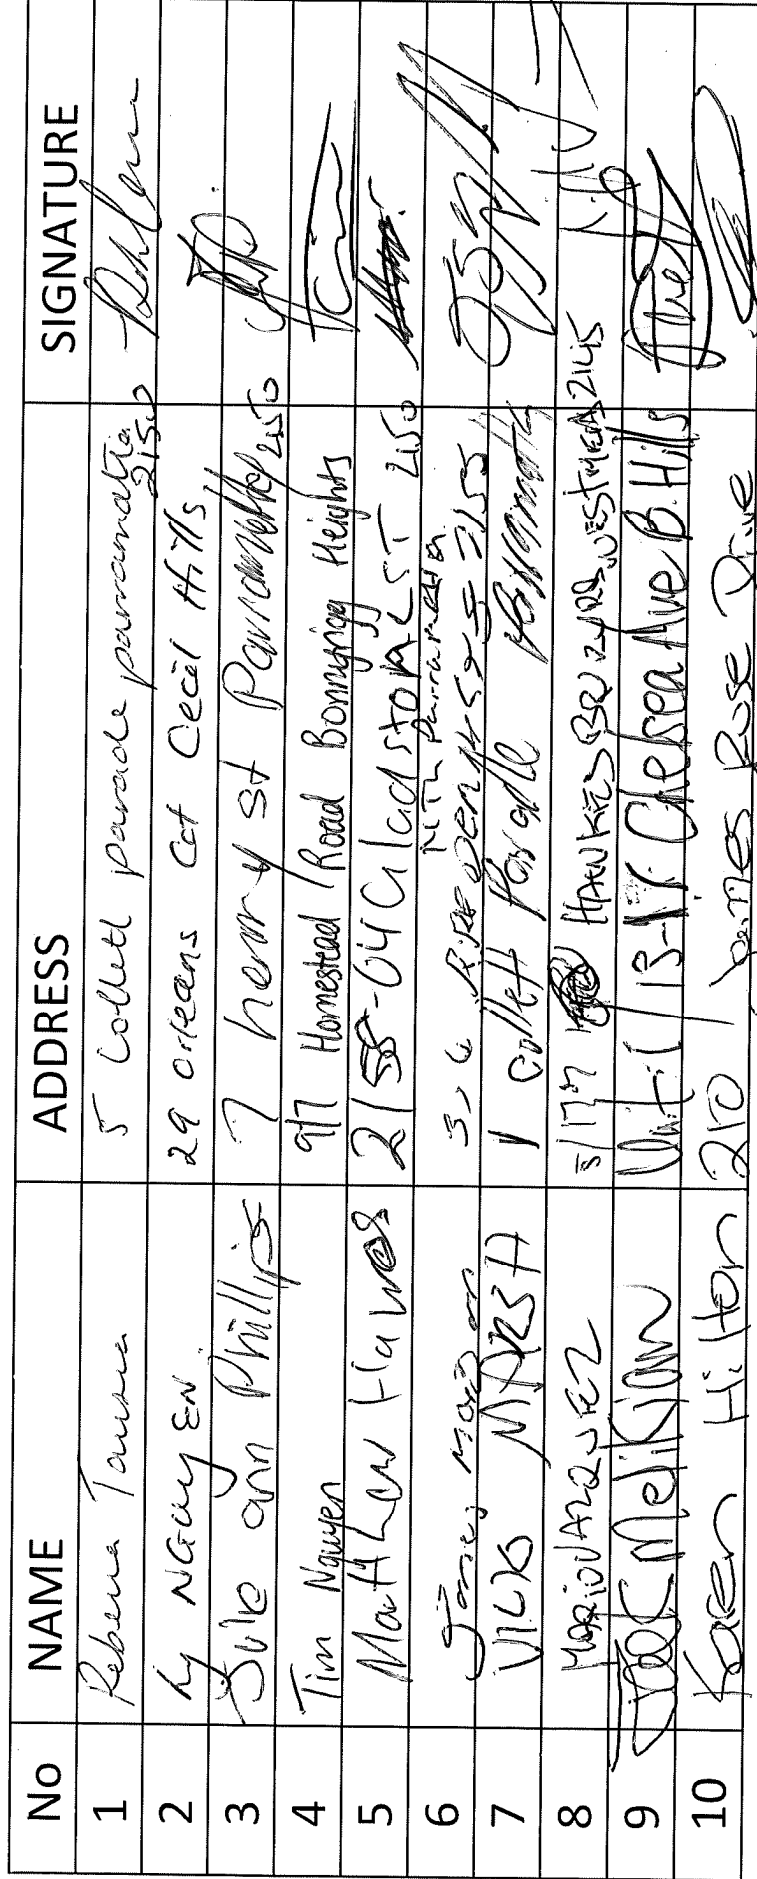 No NAME ADDRESS SIGNATURE
1 Rebecca 5 Collett parade parramatta 2150
2 Ly NGuyEN 29 Orleans Cct Cecil Hills
3 Julie ann Phillips 7 henry st Parramatta 2150
4 Tim Nguyen 9/7 Homestead Road Bonnyrigg Heights
5 Matthew Hawes 2/58-64 Gladstone ST 2150
6 James NTH Parramatta
7 VICKO 1 collett Parade Parramatta
8 MARIO VAZQUEZ 5/177 HAWKESBURY RD WESTMEAD 2145
9 Melikian Unit 1 / 13-17 Chelsea Ave B. Hills
10 Karen Hilton 210 James Ruse Drive